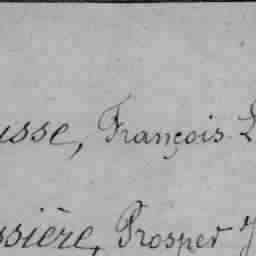 usse, François
ssière, Prosper